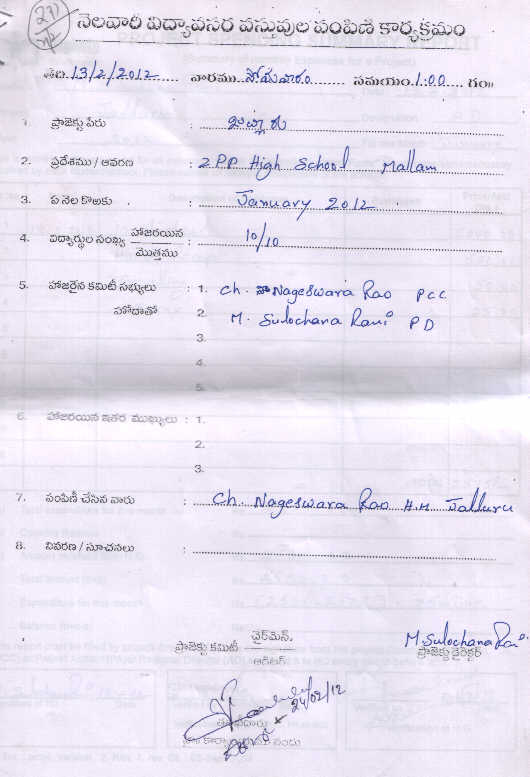 271
నెలవారీ విద్యావసర వస్తువుల పంపిణీ కార్యక్రమం
తేది. 13/2/2012 వారము సోమవారం సమయం. 1:00 గం॥
1. ప్రాజెక్టు పేరు :
2. ప్రదేశము / ఆవరణ : Z.P.P. High School Mallam
3. ఏ నెల కొఱకు : January 2012
4. విద్యార్థుల సంఖ్య హాజరయిన / మొత్తము : 10/10
5. హాజరైన కమిటీ సభ్యులు : 1. Ch. Nageswara Rao PCC
హోదాతో 2. M. Sulochana Rani PD
3.
4.
5.
6. హాజరయిన ఇతర ముఖ్యులు : 1.
2.
3.
7. పంపిణీ చేసిన వారు : Ch. Nageswara Rao H.M. Jalluru
8. వివరణ / సూచనలు :
ప్రాజెక్టు కమిటీ ఛైర్మెన్.
M. Sulochana Rani
ప్రాజెక్టు డైరెక్టర్
24/02/12